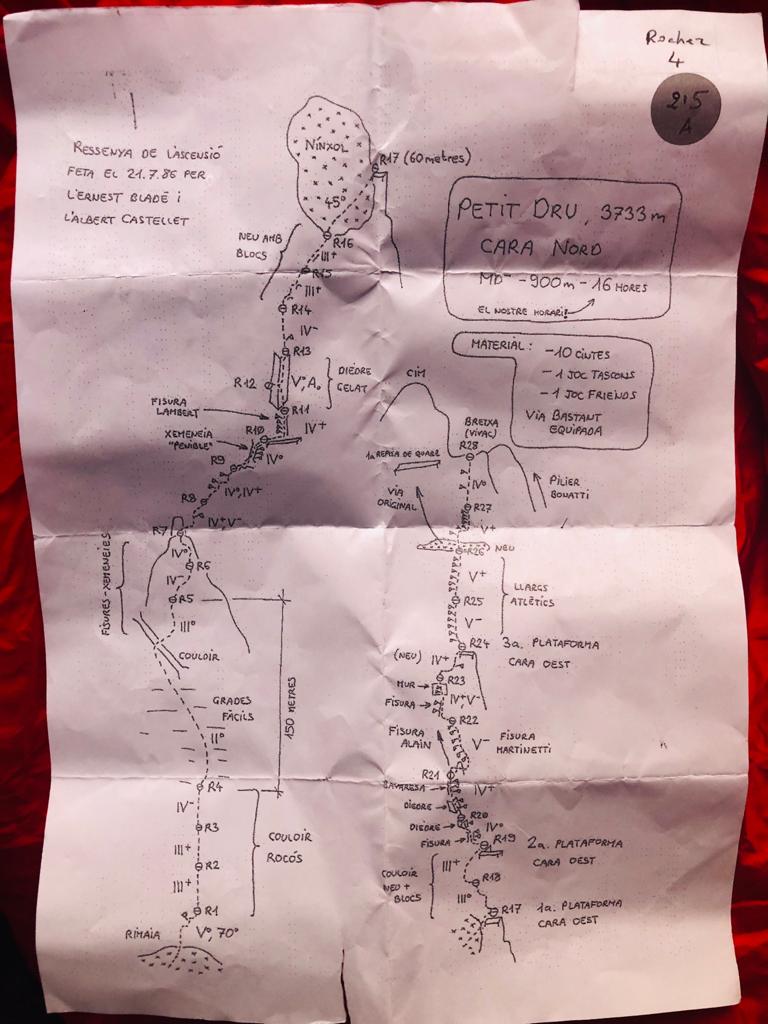 Rocher
4
2'5
A
RESSENYA DE L'ASCENSIÓ
FETA EL 21.7.86 PER
L'ERNEST BLADÉ i
L'ALBERT CASTELLET
PETIT DRU, 3733m
CARA NORD
MD⁻ - 900m - 16 HORES
EL NOSTRE HORARI!
MATERIAL:
- 10 CINTES
- 1 JOC TASCONS
- 1 JOC FRIENDS
VIA BASTANT
EQUIPADA
NÍNXOL
R17 (60 metres)
45°
R16
NEU AMB
BLOCS
III+
R15
III+
R14
IV-
R13
R12
V°, A₀
DIEDRE
GELAT
FISURA
LAMBERT
R11
IV+
XEMENEIA
"PENIBLE"
R10
R9
IV°
IV°, IV+
R8
IV+, V-
R7
IV°
R6
FISURES-XEMENEIES
IV-
R5
III°
COULOIR
GRADES
FÀCILS
II°
150 METRES
R4
IV-
R3
III+
R2
III+
COULOIR
ROCÓS
R1
RIMAIA
V°, 70°
CIM
BRETXA
(VIVAC)
R28
1a REPISA DE QUARZ
PILIER
BONATTI
IV°
R27
VIA
ORIGINAL
V+
NEU
R26
V+
R25
V-
LLARGS
ATLÈTICS
R24
3a. PLATAFORMA
CARA OEST
(NEU)
IV+
R23
MUR
FISURA
IV+, V-
R22
FISURA
ALAIN
V-
FISURA
MARTINETTI
R21
BAVARESA
IV+
DIEDRE
R20
DIEDRE
IV°
FISURA
R19
2a. PLATAFORMA
CARA OEST
III+
COULOIR
NEU +
BLOCS
R18
III°
R17
1a. PLATAFORMA
CARA OEST